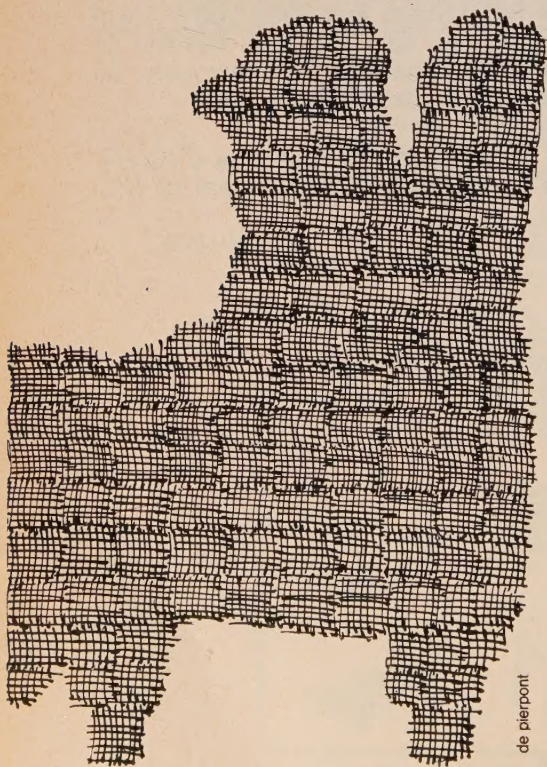 de pierpont